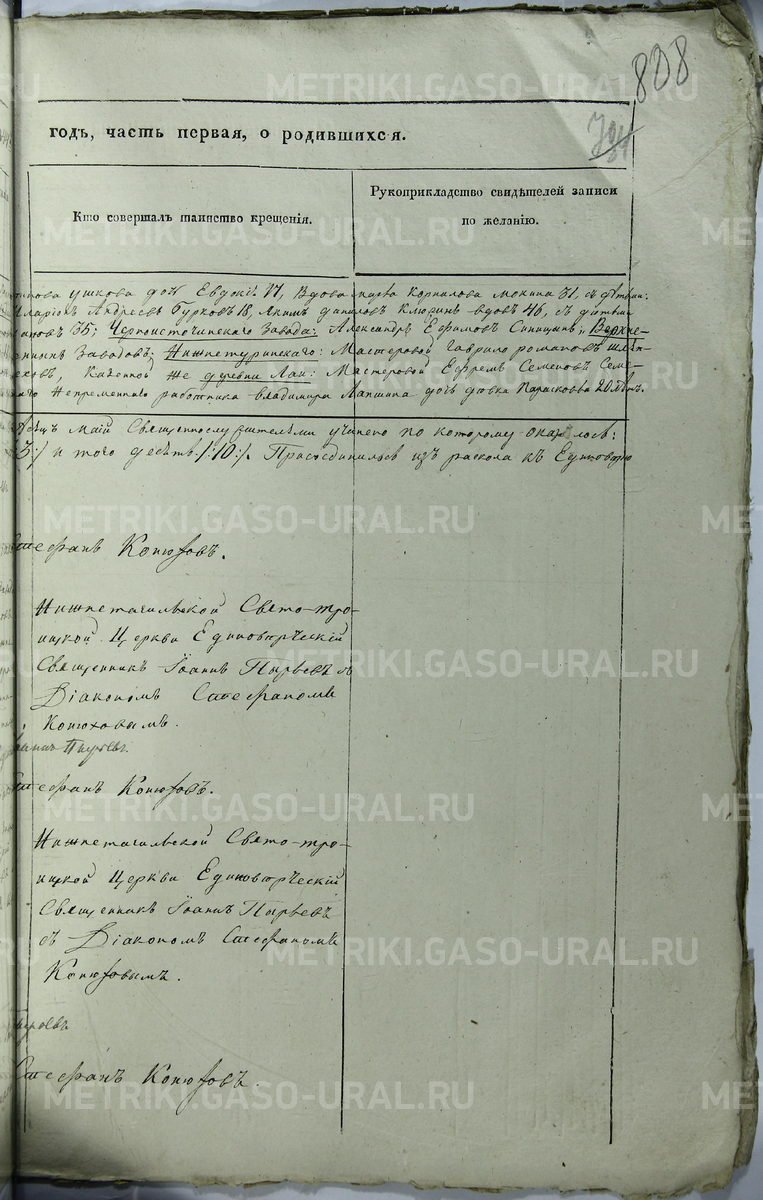 808
годъ, часть первая, о родившихся.
Кто совершалъ таинство крещенія.
Рукоприкладство свидѣтелей записи
по желанію.
ушкова Евдокіѣ 17, Вдова Корнилова Мокина 31, съ дѣтьми:
Андреевъ Бурковъ 18, Якимъ даниловъ Клюзинъ вдовъ 46, съ дѣтьми
35; Черноисточинскаго Завода: Александръ Ефимовъ Синицынъ; Верхне-
Заводовъ; Нижнетуринскаго: Мастеровой Гаврило романовъ
Казенной же деревни Лаи: Мастеровой Ефремъ Семеновъ Семе-
Непременнаго работника владимира Лапшина дочь дѣвка Парасковья 20 лѣтъ.
Маій Священнослужителями учинено по которому оказалось:
3:/ и того десять /:10:/. Присоединилъсѣ изъ раскола къ Единоверію
Стефанъ Конюховъ.
Нижнетагильской Свято-тро-
ицкой Церкви Единовѣрческій
Священникъ Іоаннъ Пырьевъ съ
Діакономъ Стефаномъ
Конюховымъ.
Пырьевъ.
Стефанъ Конюховъ.
Нижнетагильской Свято-тро-
ицкой Церкви Единовѣрческій
Священникъ Іоаннъ Пырьевъ
съ Діакономъ Стефаномъ
Конюховымъ.
Стефанъ Конюховъ.
METRIKI.GASO-URAL.RU